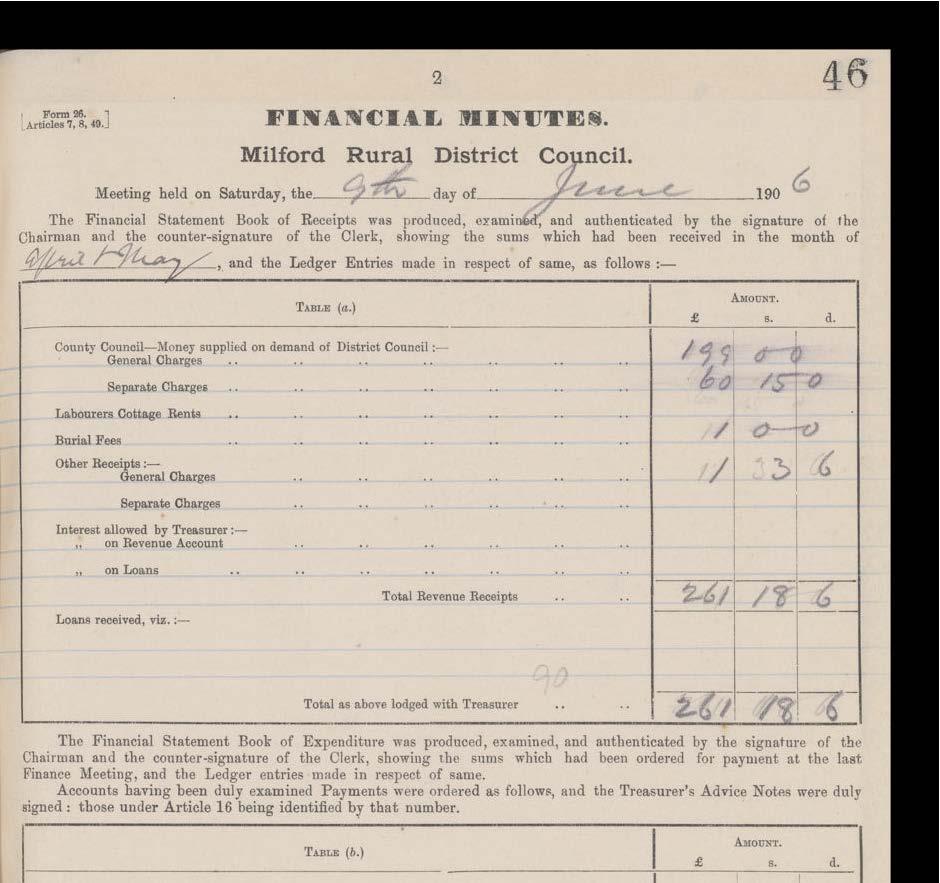 2
46
[Form 26.
Articles 7, 8, 49.]
FINANCIAL MINUTES.
Milford Rural District Council.
Meeting held on Saturday, the 9th day of June 1906
The Financial Statement Book of Receipts was produced, examined, and authenticated by the signature of the
Chairman and the counter-signature of the Clerk, showing the sums which had been received in the month of
April & May, and the Ledger Entries made in respect of same, as follows :—
TABLE (a.) AMOUNT.
£ s. d.
County Council—Money supplied on demand of District Council :—
General Charges .. .. .. .. .. .. .. 199 0 0
Separate Charges .. .. .. .. .. .. .. 60 15 0
Labourers Cottage Rents .. .. .. .. .. .. ..
Burial Fees .. .. .. .. .. .. .. 1 0 0
Other Receipts :—
General Charges .. .. .. .. .. .. 1 3 6
Separate Charges .. .. .. .. .. ..
Interest allowed by Treasurer :—
„ on Revenue Account .. .. .. .. .. ..
„ on Loans .. .. .. .. .. .. ..
Total Revenue Receipts .. .. 261 18 6
Loans received, viz. :—
90
Total as above lodged with Treasurer .. .. 261 18 6
The Financial Statement Book of Expenditure was produced, examined, and authenticated by the signature of the
Chairman and the counter-signature of the Clerk, showing the sums which had been ordered for payment at the last
Finance Meeting, and the Ledger entries made in respect of same.
Accounts having been duly examined Payments were ordered as follows, and the Treasurer's Advice Notes were duly
signed : those under Article 16 being identified by that number.
TABLE (b.) AMOUNT.
£ s. d.